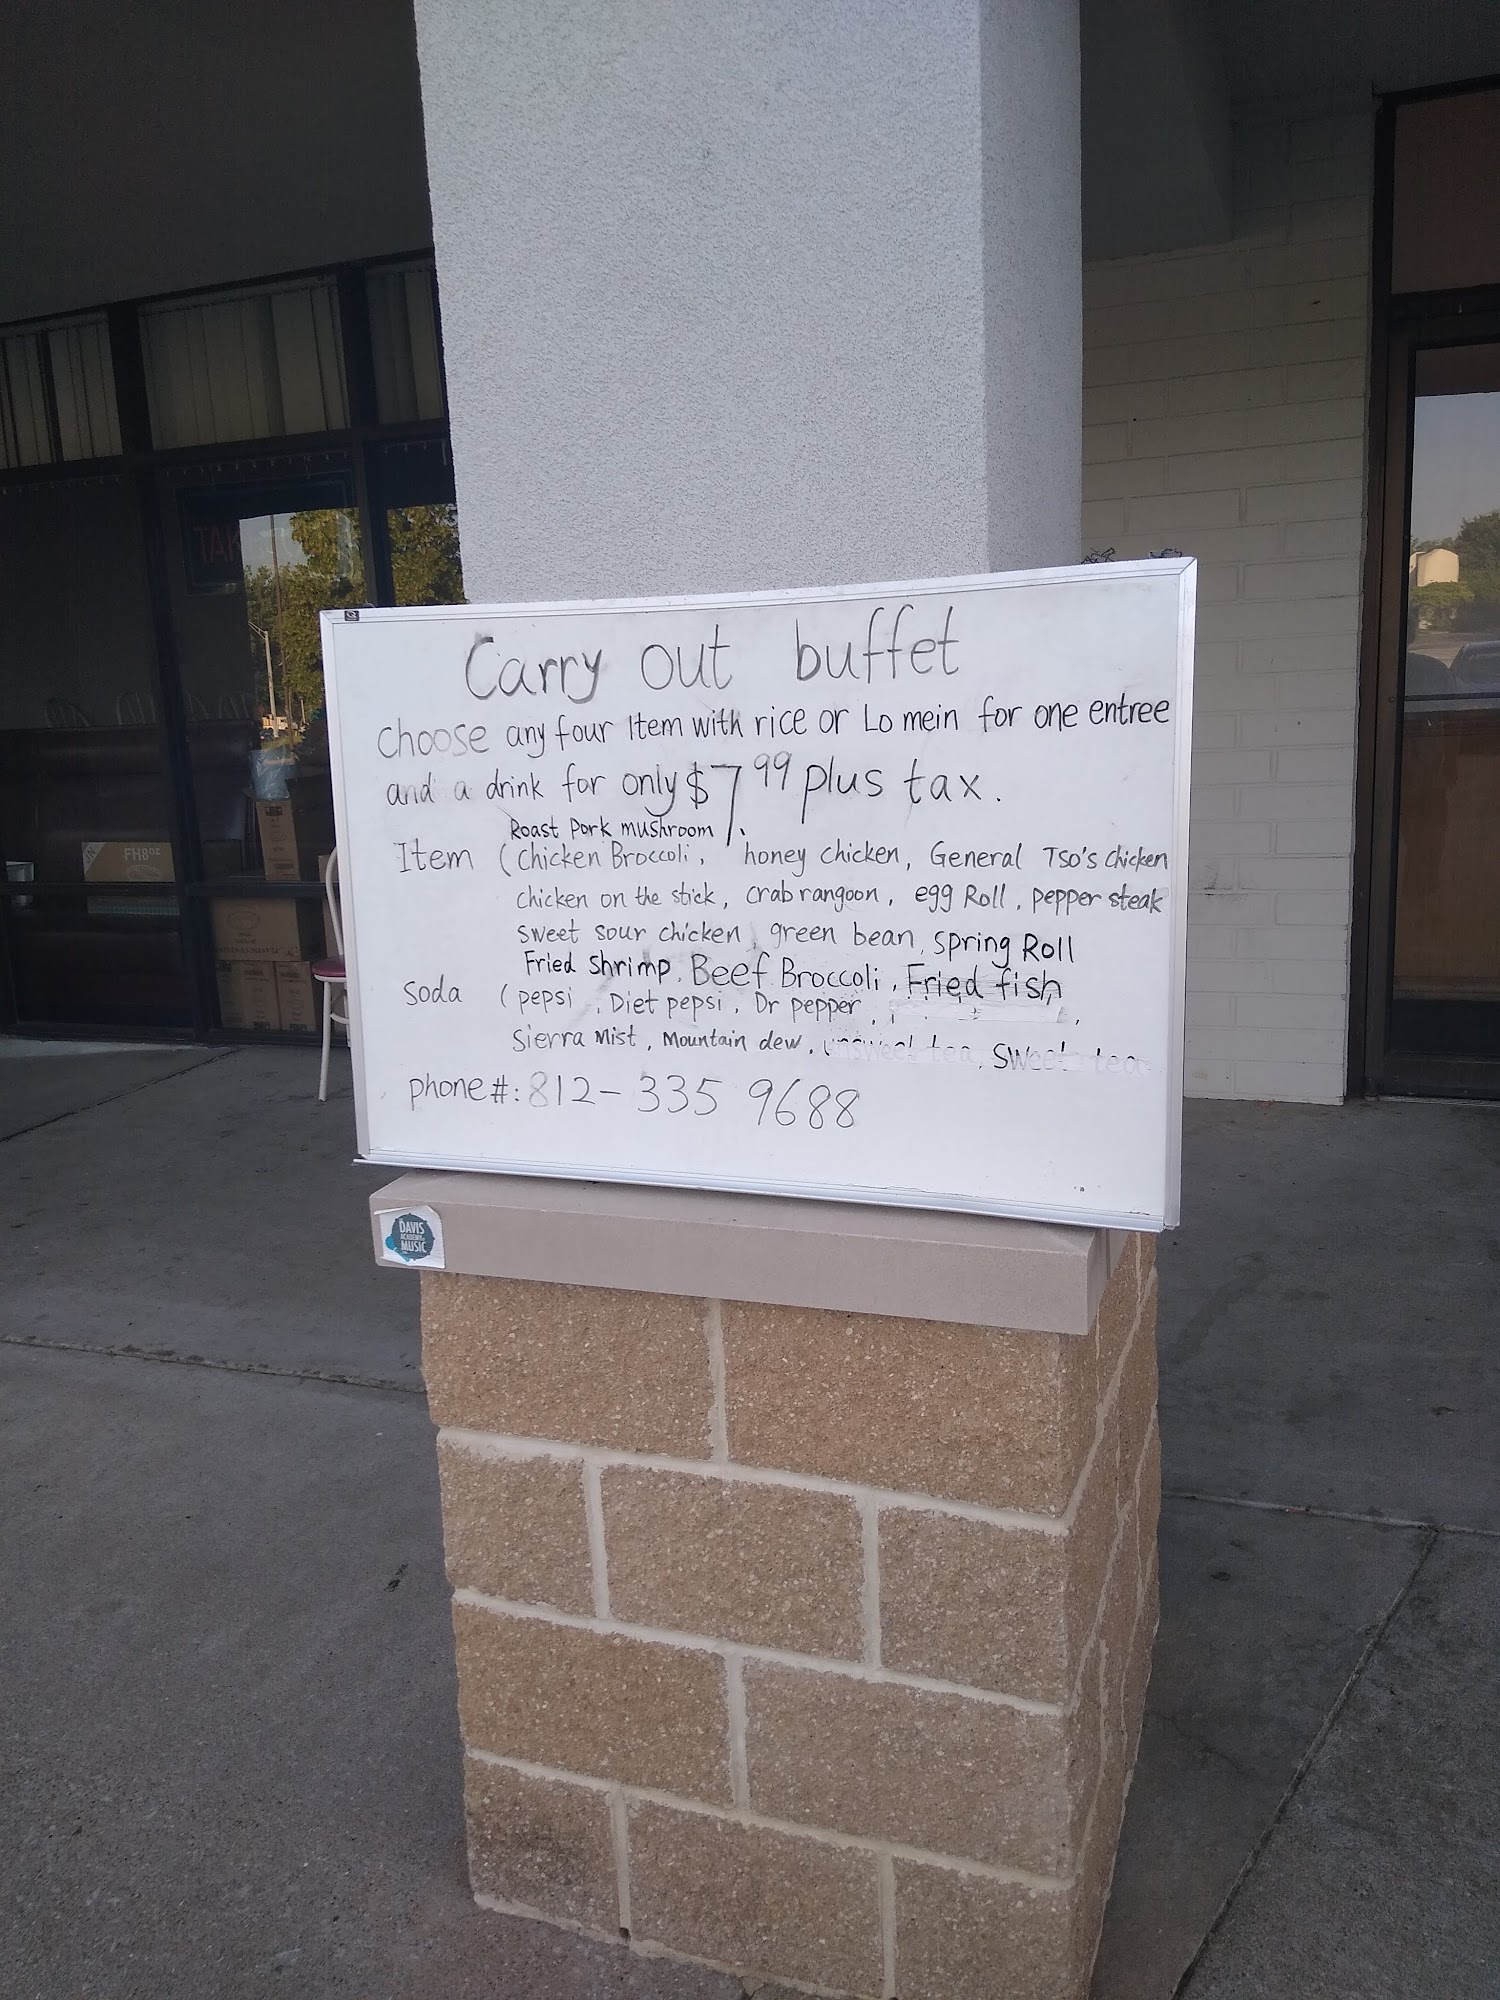 Carry out buffet
choose any four Item with rice or Lo mein for one entree
and a drink for only $7.99 plus tax.
Roast Pork mushroom,
Item (chicken Broccoli, honey chicken, General Tso's chicken
chicken on the stick, crab rangoon, egg Roll, pepper steak
sweet sour chicken, green bean, spring Roll
Fried shrimp, Beef Broccoli, Fried fish
Soda (pepsi, Diet pepsi, Dr pepper,
Sierra Mist, Mountain dew, unsweet tea, sweet tea
phone#: 812-335 9688
DAVIS
ACADEMY OF
MUSIC
FH8oz